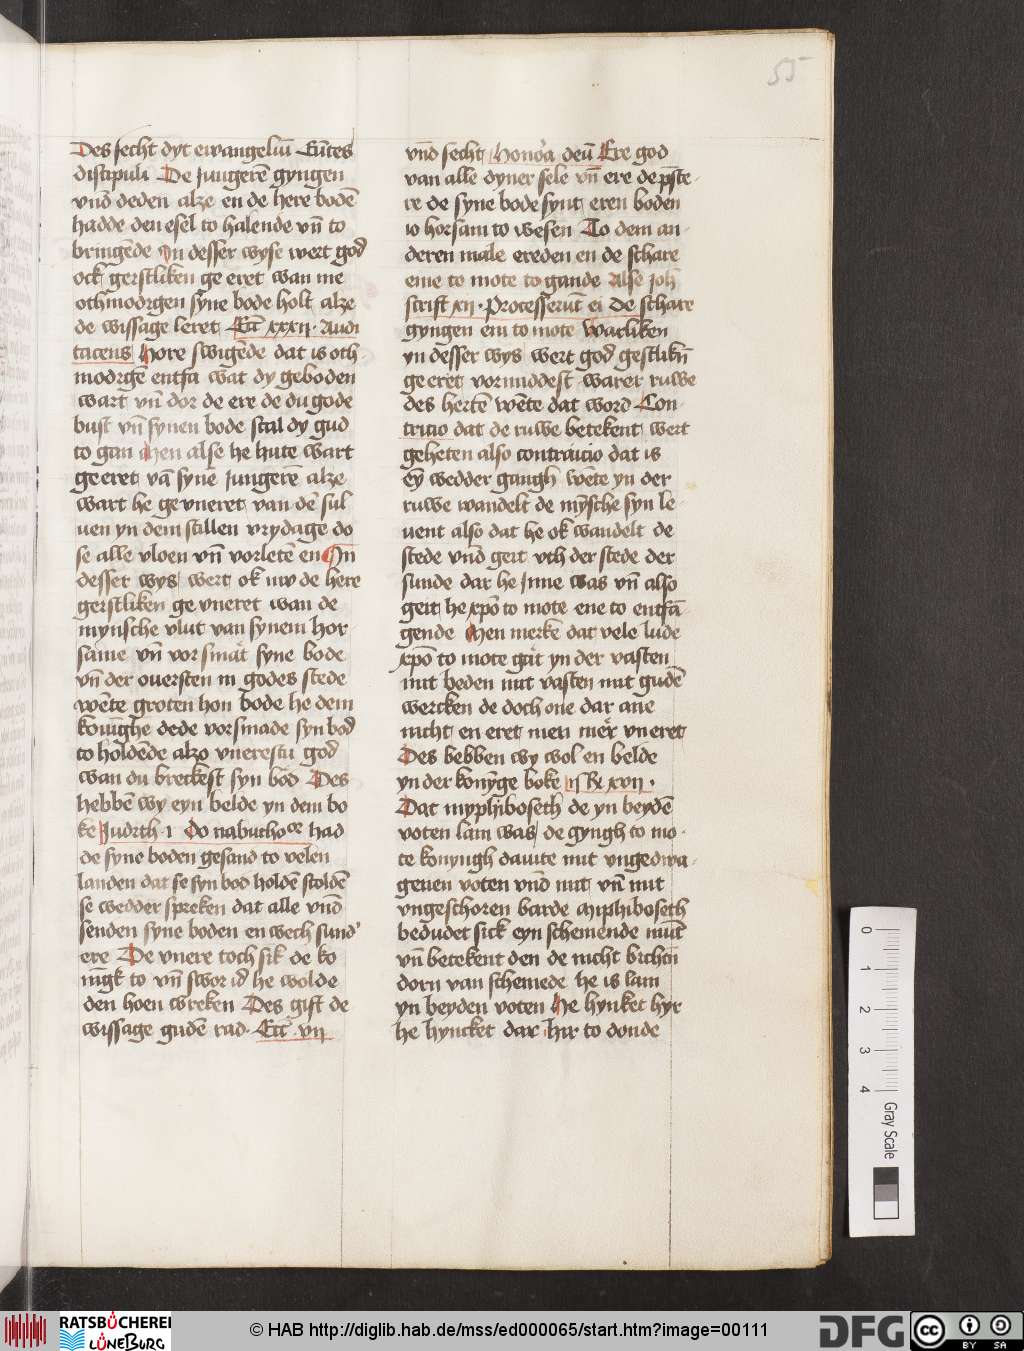 55
Des secht dyt ewangeliū Eūtes
discipuli De jungerē gyngen
vnd deden alze en de here bodē
hadde den esel to halende vn̄ to
bringēde In desser wyse wert god
ock geystliken ge eret wan me
othmodygen syne bode holt alze
de wissage leret Ecc̄ xxxii · Audi
tacens Hore swigēde dat is oth
modygē entfa wat dy geboden
wart vn̄ dor de ere de du gode
bust vn̄ synen bode scal dy gud
to gan Men alse he hute wart
ge eret vā syne jungerē alze
wart he ge vneret van dē sul
uen yn dem stillen vrydage do
se alle vloen vn̄ vorletē en In
desser wys wert ok nw de here
geystliken ge vneret wan de
mynsche vlut van synem hor
same vn̄ vorsmat syne bode
vn̄ der ouersten in godes stede
wēte groten hon bode he dem
konīghe dede vorsmade syn bod
to holdēde alzo vnerestu god
wan du breckest syn bod Des
hebbē wy eyn belde yn dem bo
ke Judith · i Do nabuchoᵒᵉ had
de syne boden gesand to velen
landen dat se syn bod holdē scoldē
se wedder spreken dat alle vnd
senden syne boden en wech sund'
ere De vnere toch sik de ko
nīgk to vn̄ swor id he wolde
den hoen wreken Des gift de
wissage gudē rad · Ecc̄ vii
vnd secht Honora deū Ere god
van alle dyner sele vn̄ ere de p̄ste
re de syne bode synt eren boden
io horsam to wesen To dem an
deren male ereden en de schare
eme to mote to gande Alse Joh̄
scrift xii · Processerūt ei De schare
gyngen em to mote Warliken
yn desser wys wert god gestlikn̄
ge eret vormiddest warer ruwe
des hertē wēte dat word Con
tricio dat de ruwe betekent wert
geheten also contraicio dat is
eȳ wedder gangh wēte yn der
ruwe wandelt de mȳsche syn le
uent also dat he ok wandelt de
stede vnd geit vth der stede der
sunde dar he jnne was vn̄ also
geit he xpō to mote ene to entfā
gende Men merke dat vele lude
xpō to mote gāt yn der vasten
mit beden mit vasten mit gudē
wercken de doch one dar ane
nicht en eret men mer vn eret
Des hebben wy wol en belde
yn der konȳge boke ii Re xvii ·
Dat myphiboseth de yn beydē
voten lam was de gyngh to mo
te konyngh dauite mit vngedwa
genen voten vnd mit vn̄ mit
vngeschoren barde Miphiboseth
bedudet sick eyn schemende mūt
vn̄ betekent den de nicht bichtn̄
dorn van schemede he is lam
yn beyden voten He hynket hyr
he hyncket dar hir to donde
0
1
2
3
4
Gray Scale
RATSBÜCHEREI
LÜNEBURG
© HAB http://diglib.hab.de/mss/ed000065/start.htm?image=00111
DFG
cc
BY SA